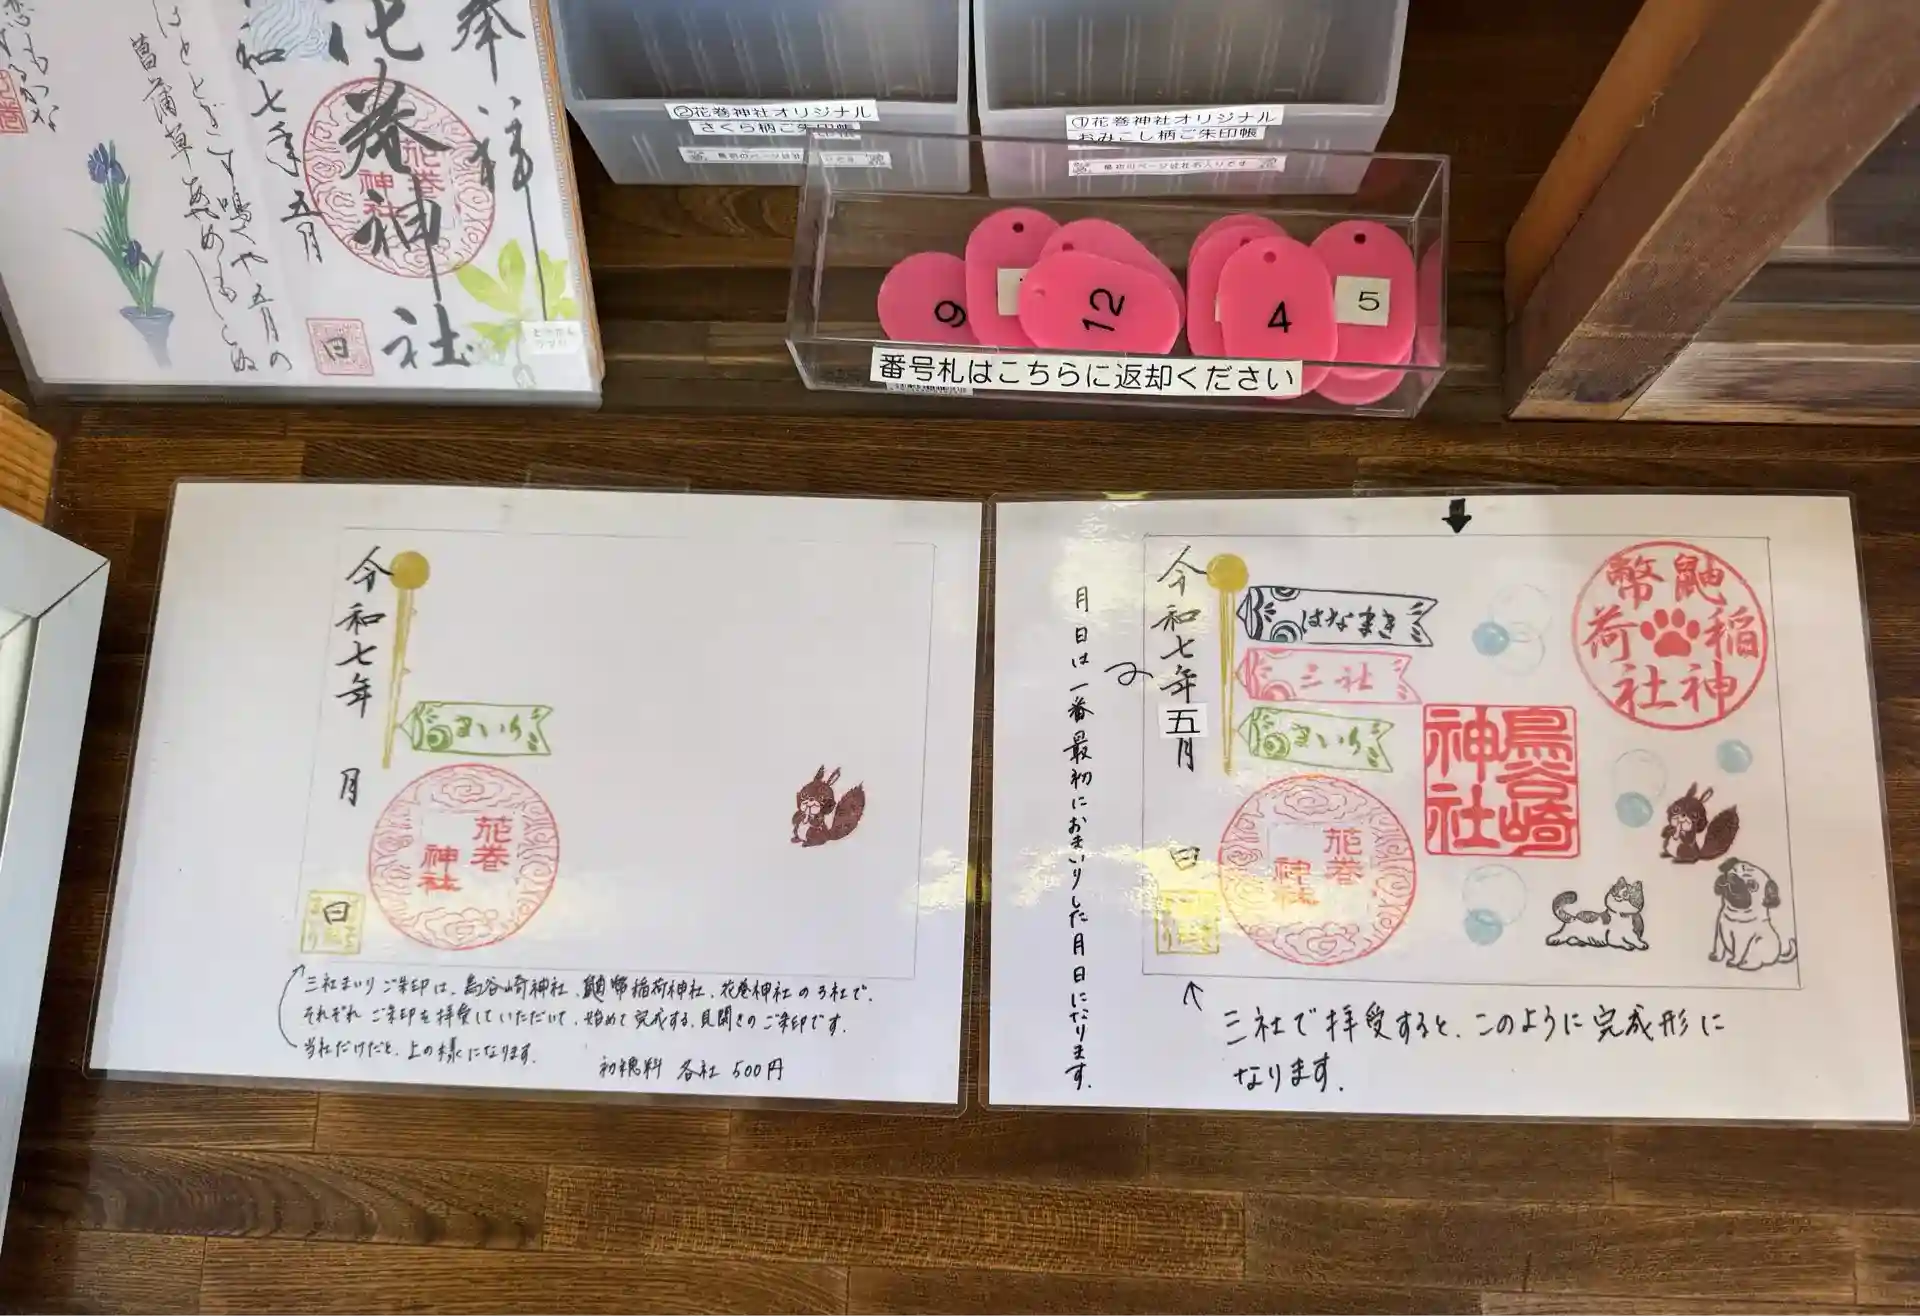 奉拝
花巻神社
花巻
神社
令和七年五月
日
ほととぎす鳴くや五月の
菖蒲草
②花巻神社オリジナル
さくら柄ご朱印帳
①花巻神社オリジナル
おみこし柄ご朱印帳
最初のページは社名入りです
9
12
4
5
番号札はこちらに返却ください
令和七年
月
日
まいり
花巻
神社
三社まいりご朱印は、鳥谷崎神社、鼬幣稲荷神社、花巻神社の3社で、
それぞれご朱印を拝受していただいて、始めて完成する、見開きのご朱印です。
当社だけだと、上の様になります。
初穂料 各社 500円
月日は一番最初におまいりした月日になります。
令和七年五月
日
はなまき
三社
まいり
花巻
神社
鳥谷崎
神社
鼬幣
稲荷
神社
三社で拝受すると、このように完成形に
なります。